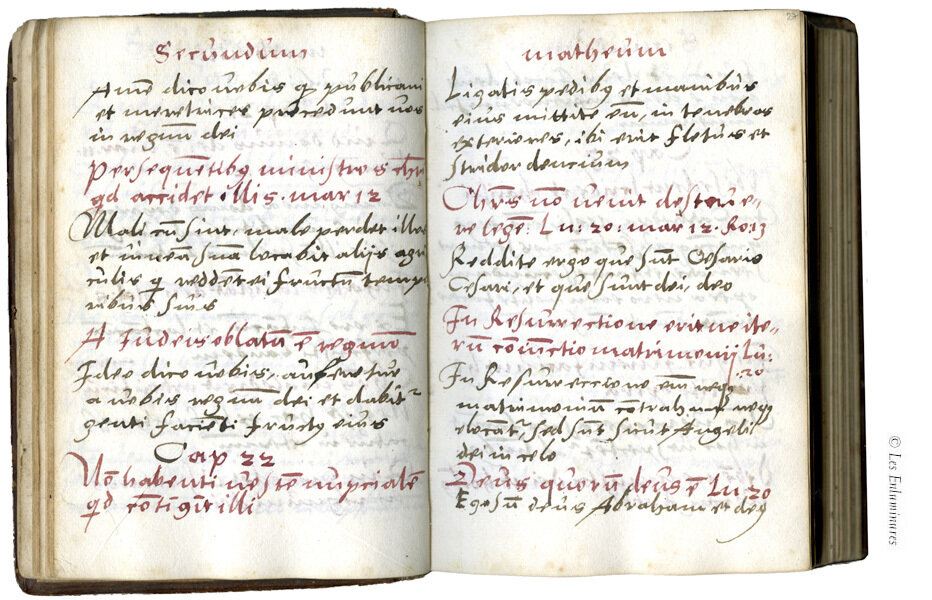 Secundum
Amē dico uobis q publicani
et meretrices precedunt uos
in regnum dei
persequētibꝫ ministros chri
qd accidet illis. mar 12
Mali cū sint, male perdet illos
et uineā suā locabit alijs agri
culis q reddēt ei fructū tempo
ribus suis
A Iudeis oblatū ē regnum
Ideo dico uobis, auferetur
a uobis regnum dei et dabit
genti faciēti fructꝫ eius
Cap 22
Nō habenti uestem nupcialē
qd cōtigit illi
matheum
27
Ligatis pedibꝫ et manibus
eius mittite eū, in tenebras
exteriores, ibi erit fletus et
stridor dencium
Chrs nō uenit destrue„
re legē: Lu: 20: mar 12. Ro: 13
Reddite ergo que sūt Cesaris
Cesari, et que sunt dei, deo
In Resurrectione erit ne ite„
rū coniūctio matrimonij Lu:
20
In Resureccione em neqꝫ
matrimoniū contrahunt neqꝫ
elocāt, sed sūt sicut Angeli
dei in celo
Deus quorū deus ē Lu. 20
Ego sū deus Abraham et deꝫ
© Les Enluminures